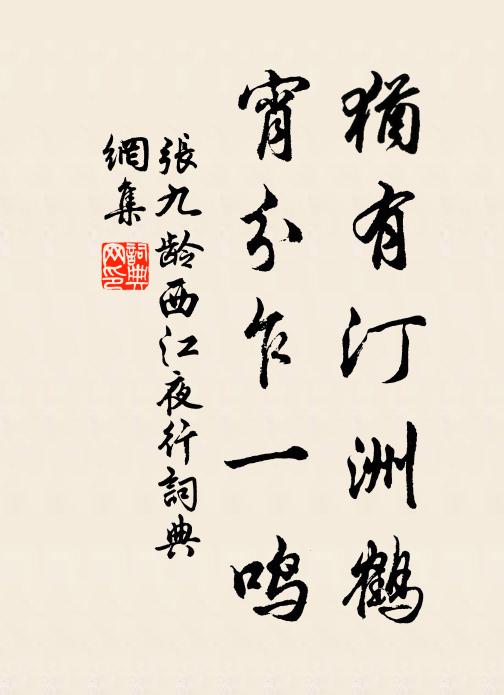 猶有汀洲鶴
宵分乍一鸣
張九龄西江夜行詞典
網集
詞典
网印